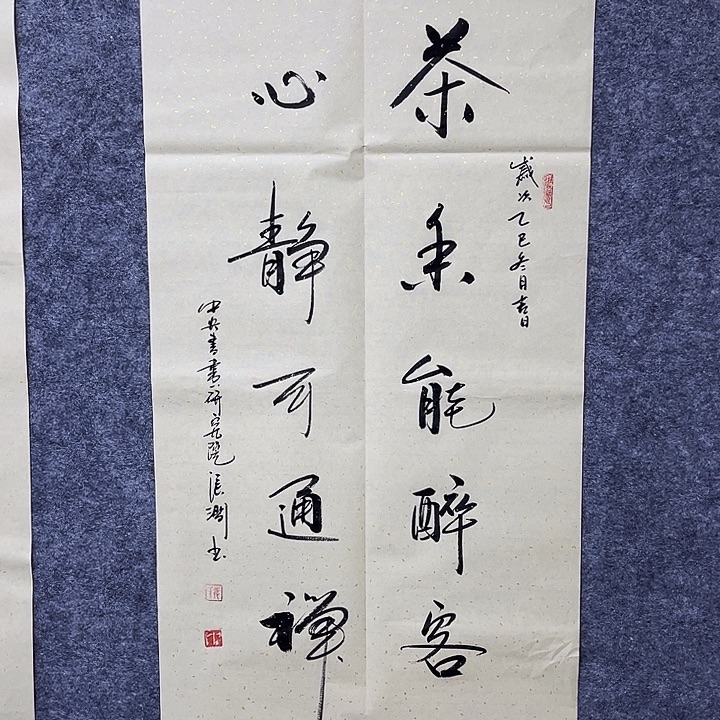 茶香能醉客
歲次乙巳冬月吉日
心静可通禅
中央書畫研究院張渊书